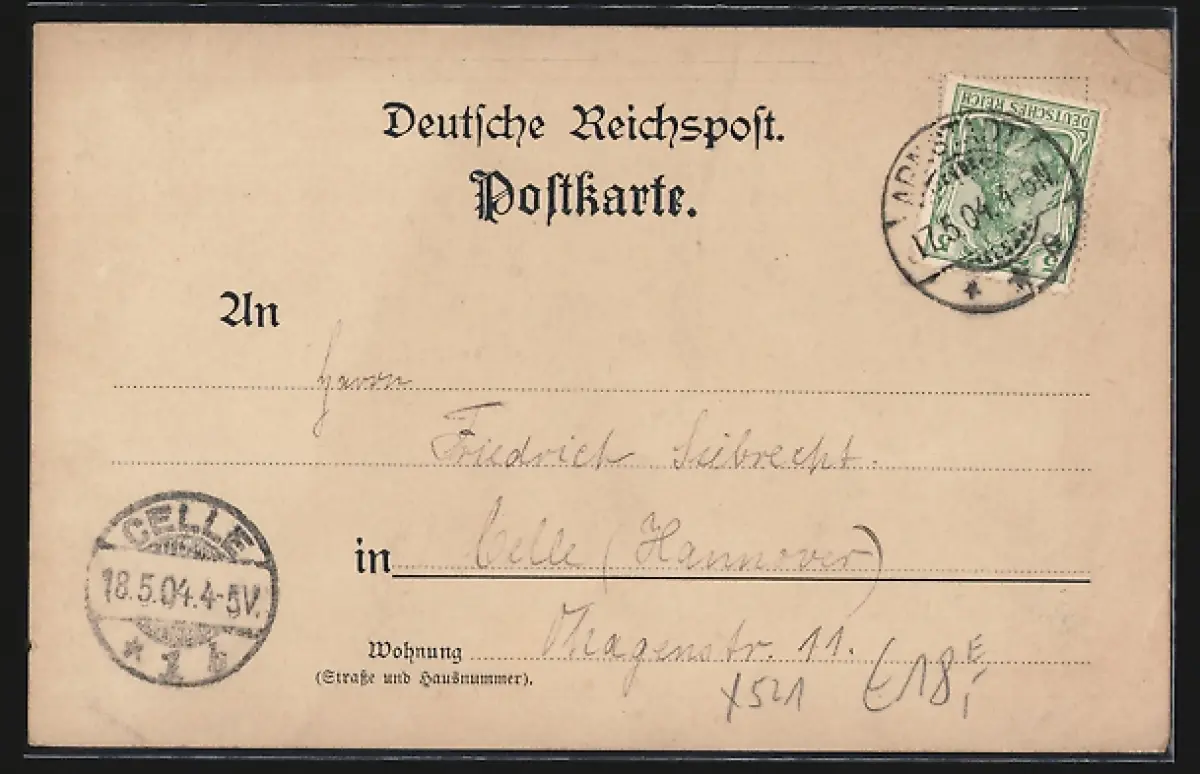 Deutsche Reichspost.
Postkarte.
DEUTSCHES REICH
ARNSTADT
17.5.04.4-5N
An
Herrn
Friedrich Siebrecht.
in Celle (Hannover)
Wohnung
11.
(Straße und Hausnummer).
CELLE
18.5.04.4-5V.
* 1 b
x521
€18,